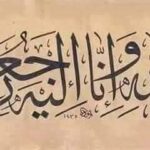 له وإنا إليه راجعو